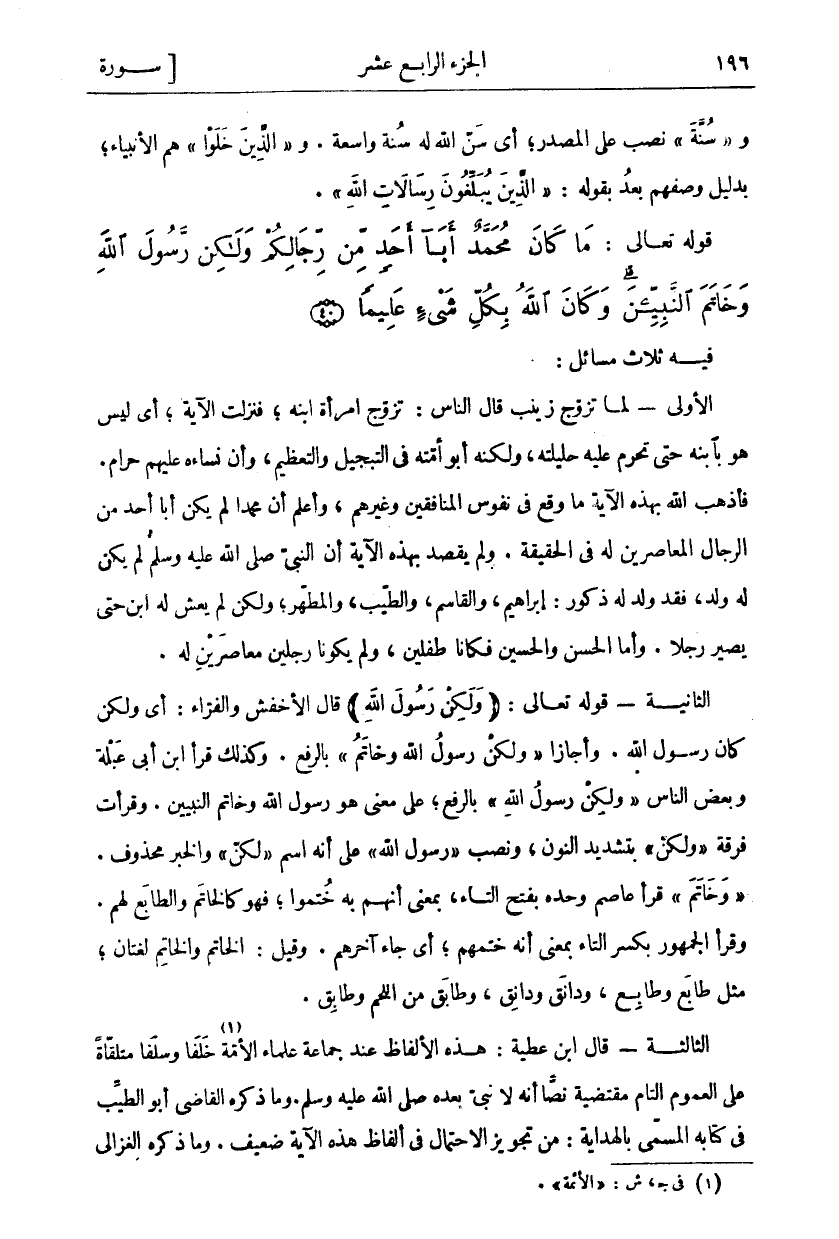 ١٩٦ الجزء الرابع عشر [ سـورة
و « سُنَّةَ » نصب على المصدر؛ أى سَنّ الله له سُنة واسعة . و « الَّذِينَ خَلَوْا » هم الأنبياء؛
بدليل وصفهم بعدُ بقوله : « الَّذِينَ يُبَلِّغُونَ رِسَالَاتِ اللهِ » .
قوله تعـالى : مَا كَانَ مُحَمَّدٌ أَبَآ أَحَدٍ مِّن رِّجَالِكُمْ وَلَـٰكِن رَّسُولَ ٱللَّهِ
وَخَاتَمَ ٱلنَّبِيِّـۧنَ ۗ وَكَانَ ٱللَّهُ بِكُلِّ شَىْءٍ عَلِيمًا ﴿٤٠﴾
فيـه ثلاث مسائل :
الأولى — لمـا تزوّج زينب قال الناس : تزوّج امرأة ابنه ؛ فنزلت الآية ؛ أى ليس
هو بٱبنه حتى تحرم عليه حليلته، ولكنه أبو أمّته فى التبجيل والتعظيم، وأن نساءه عليهم حرام.
فأذهب الله بهذه الآية ما وقع فى نفوس المنافقين وغيرهم ، وأعلم أن محمدا لم يكن أبا أحد من
الرجال المعاصرين له فى الحقيقة . ولم يقصد بهذه الآية أن النبىّ صلى الله عليه وسلم لم يكن
له ولد، فقد ولد له ذكور : إبراهيم، والقاسم، والطيّب، والمطهّر؛ ولكن لم يعش له ابن حتى
يصير رجلا . وأما الحسن والحسين فكانا طفلين ، ولم يكونا رجلين معاصرَيْنِ له .
الثانيـــة — قوله تعـالى : ﴿ وَلَكِنْ رَسُولَ اللهِ ﴾ قال الأخفش والفرّاء : أى ولكن
كان رسـول الله . وأجازا « ولكنْ رسولُ الله وخاتَمُ » بالرفع . وكذلك قرأ ابن أبى عَبْلة
وبعض الناس « ولكِنْ رسولُ اللهِ » بالرفع؛ على معنى هو رسول الله وخاتم النبيين . وقرأت
فرقة «ولكنّ» بتشديد النون، ونصب «رسول الله» على أنه اسم «لكنّ» والخبر محذوف .
« وَخَاتَمَ » قرأ عاصم وحده بفتح التـاء، بمعنى أنهـم به خُتموا ؛ فهو كالخاتَم والطابَع لهم .
وقرأ الجمهور بكسر التاء بمعنى أنه ختمهم ؛ أى جاء آخرهم . وقيل : الخاتَم والخاتِم لغتان ؛
مثل طابَع وطابِـع ، ودانَق ودانِق ، وطابَق من اللحم وطابِق .
الثالثـــة — قال ابن عطية : هـذه الألفاظ عند جماعة علماء الأمّة (١) خَلَفًا وسلَفًا متلقّاةً
على العموم التام مقتضية نصًّا أنه لا نبىّ بعده صلى الله عليه وسلم. وما ذكره القاضى أبو الطيّب
فى كتابه المسمّى بالهداية : من تجويز الاحتمال فى ألفاظ هذه الآية ضعيف . وما ذكره الغزالى
(١) فى جـ ، ش : «الأئمة» .